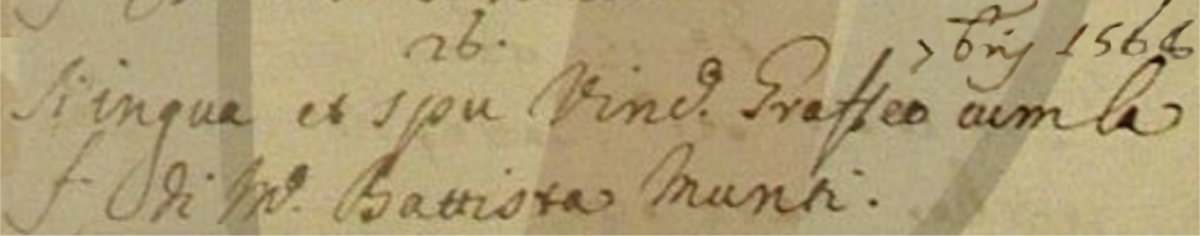 26. 7bris 1568
Si ingua et spu Vinc.º Grasseo cum la
f. di M.º Battista Munti.